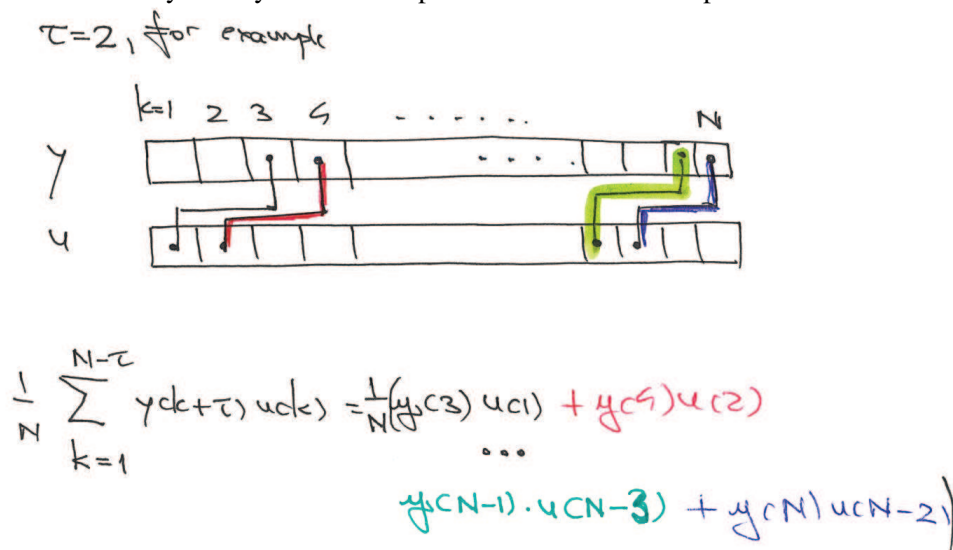 τ=2, for example
k=1 2 3 4 . . . . . .
N
y . . . .
u
1/N ∑_{k=1}^{N-τ} y(k+τ) u(k) = 1/N (y(3) u(1) + y(4) u(2)
...
y(N-1) . u(N-3) + y(N) u(N-2))